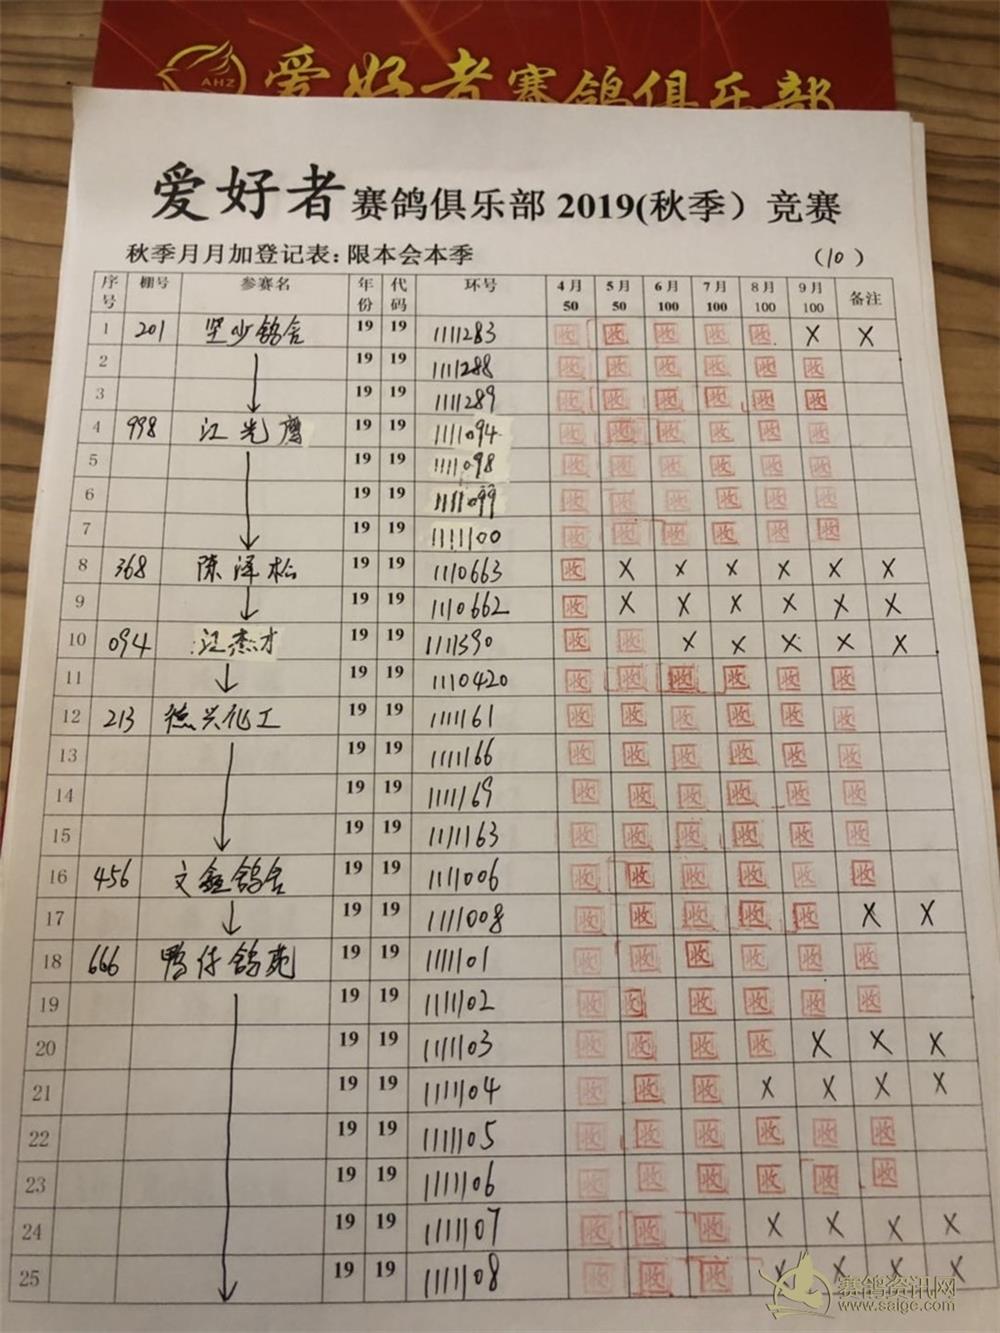 AHZ
爱好者赛鸽俱乐部
爱好者赛鸽俱乐部2019(秋季）竞赛
秋季月月加登记表：限本会本季 （10）
序号 棚号 参赛名 年份 代码 环号 4月50 5月50 6月100 7月100 8月100 9月100 备注
1 201 坚少鸽舍 19 19 1111283 收 收 收 收 收 X X
2 19 19 1111288 收 收 收 收 收 收
3 19 19 1111289 收 收 收 收 收 收
4 998 江光鹰 19 19 1111094 收 收 收 收 收 收
5 19 19 1111098 收 收 收 收 收 收
6 19 19 1111099 收 收 收 收 收 收
7 19 19 1111100 收 收 收 收 收 收
8 368 陈泽松 19 19 1110663 收 X X X X X X
9 19 19 1110662 收 X X X X X X
10 094 江杰才 19 19 1111590 收 收 X X X X X
11 19 19 1110420 收 收 收 收 收 收
12 213 德兴化工 19 19 1111161 收 收 收 收 收 收
13 19 19 1111166 收 收 收 收 收 收
14 19 19 1111169 收 收 收 收 收 收
15 19 19 1111163 收 收 收 收 收 收
16 456 文鑫鸽舍 19 19 1111006 收 收 收 收 收 收
17 19 19 1111008 收 收 收 收 收 X X
18 666 鸭仔鸽苑 19 19 1111101 收 收 收 收 收 收
19 19 19 1111102 收 收 收 收 收 收
20 19 19 1111103 收 收 收 收 X X X
21 19 19 1111104 收 收 收 X X X X
22 19 19 1111105 收 收 收 收 收 收
23 19 19 1111106 收 收 收 收 收 收
24 19 19 1111107 收 收 收 X X X X
25 19 19 1111108 收 收 收 X X X X
赛鸽资讯网
www.saige.com